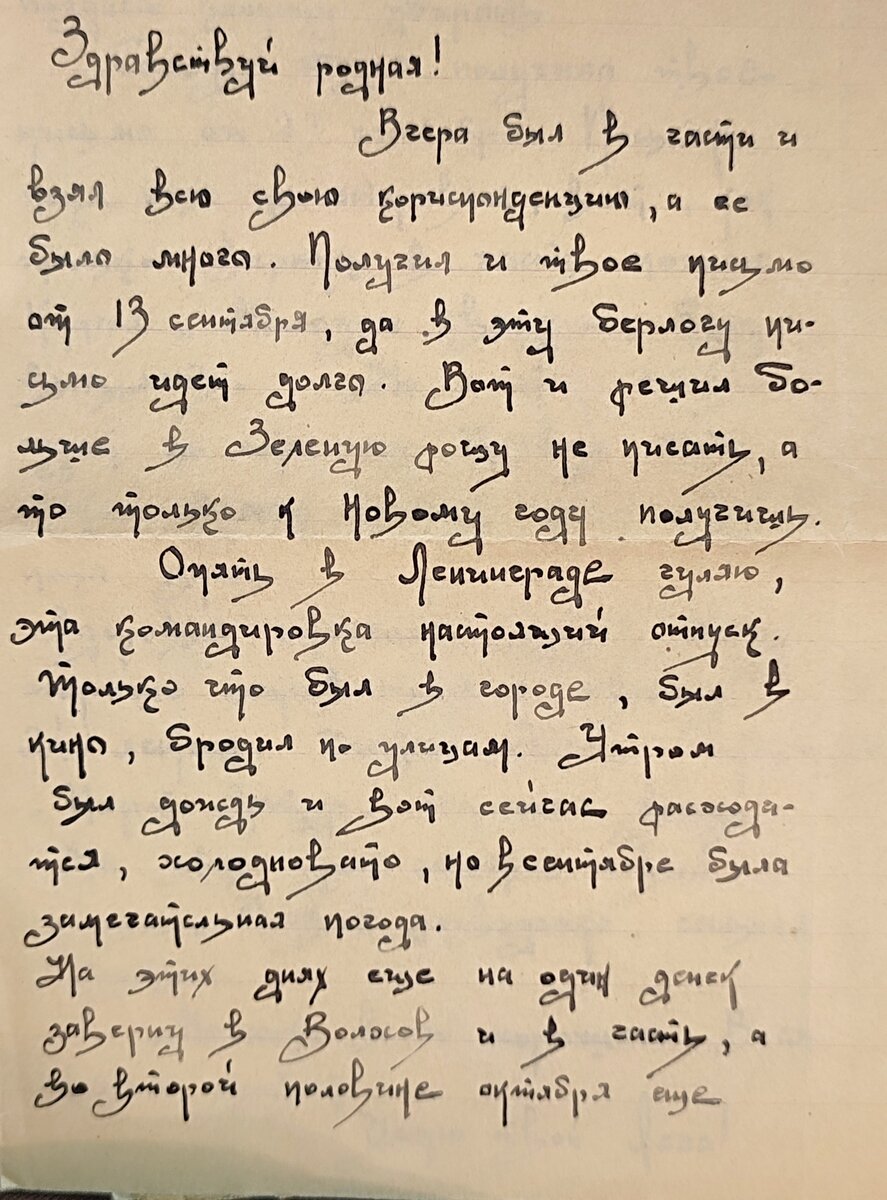 Здравствуй родная!
Вчера был в части и
взял всю свою кориспонденцию, а ее
было много. Получил и твое письмо
от 13 сентября, да в эту берлогу пи-
сьмо идет долго. Вот и решил бо-
льше в Зеленую рощу не писать, а
то только к Новому году получишь.
Опять в Ленинграде гуляю,
эта командировка настоящий отпуск.
Только что был в городе, был в
кино, бродил по улицам. Утром
был дождь и вот сейчас расхода-
тся, холодновато, но в сентябре была
замечательная погода.
На этих днях еще на один денек
заверну в Волхов и в часть, а
во второй половине октября еще